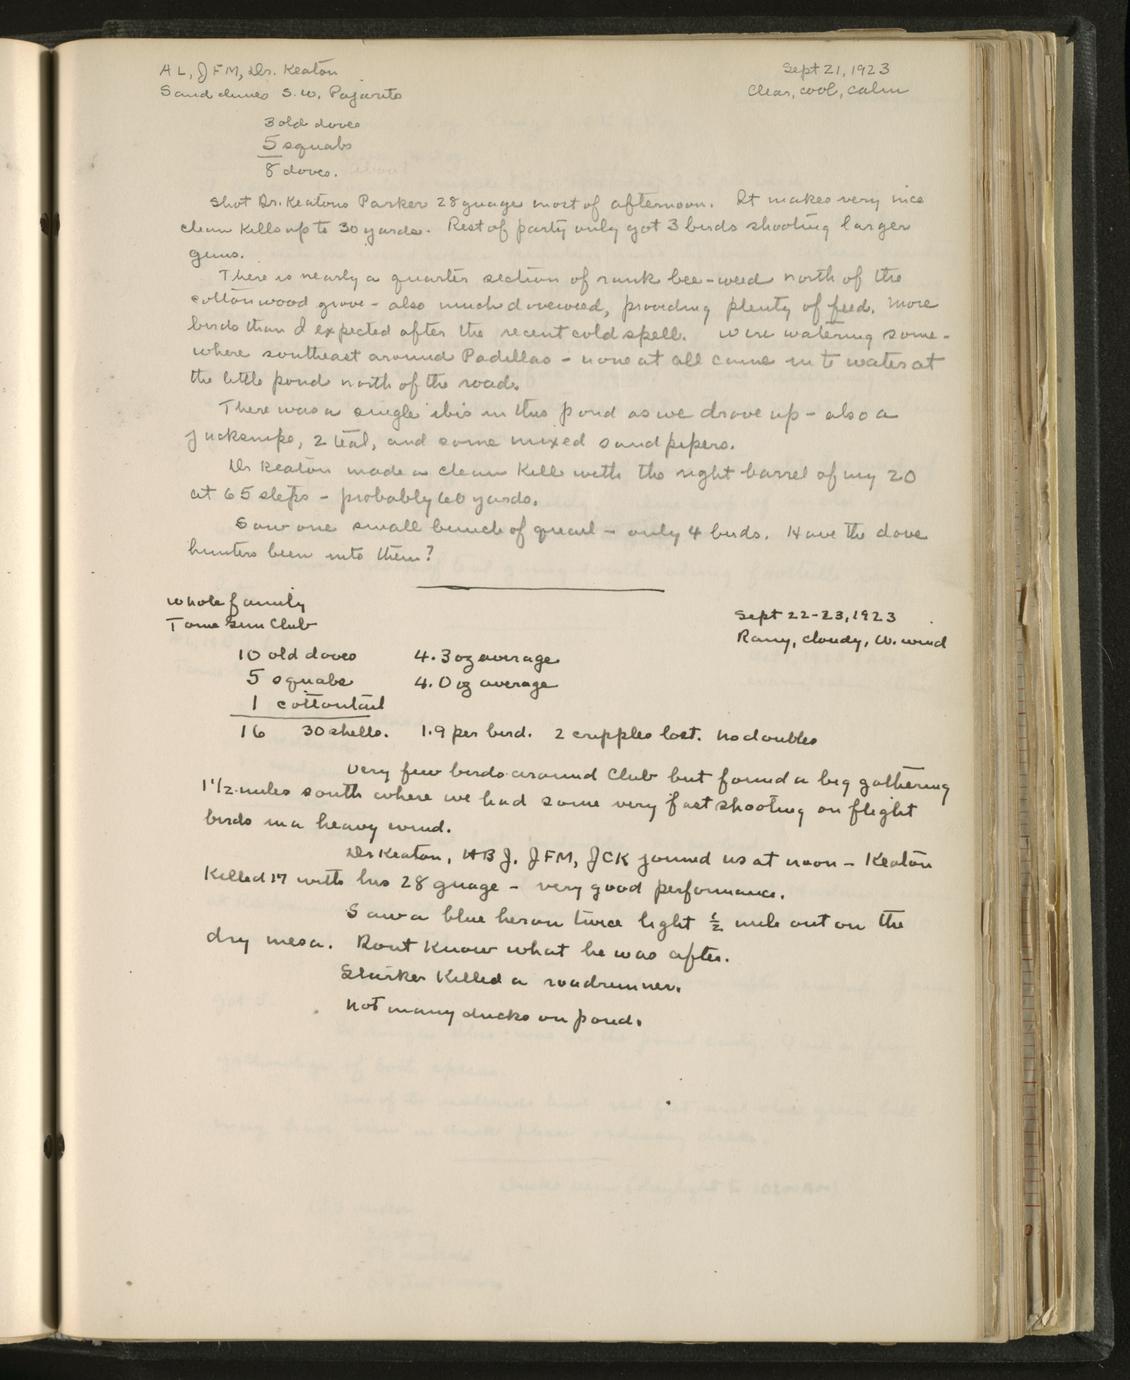 AL, JFM, Dr. Keaton
Sept 21, 1923
Sand dunes S.W. Pajarito
Clear, cool, calm
3 old doves
5 squabs
8 doves.
Shot Dr. Keatons Parker 28 guage most of afternoon. It makes very nice
clean kills up to 30 yards. Rest of party only got 3 birds shooting larger
guns.
There is nearly a quarter section of rank bee-weed north of the
cottonwood grove - also much doveweed, providing plenty of feed. More
birds than I expected after the recent cold spell. Were watering some-
where southeast around Padillas - none at all came in to water at
the little pond north of the road.
There was a single ibis in this pond as we drove up - also a
jacksnipe, 2 teal, and some mixed sandpipers.
Dr Keaton made a clean kill with the right barrel of my 20
at 65 steps - probably 60 yards.
Saw one small bunch of quail - only 4 birds. Have the dove
hunters been into them?
Whole family
Tome Gun Club
Sept 22-23, 1923
Rainy, cloudy, W. wind
10 old doves 4.3 oz average
5 squabs 4.0 oz average
1 cottontail
16 30 shells. 1.9 per bird. 2 cripples lost. No doubles
Very few birds around Club but found a big gathering
1 1/2 miles south where we had some very fast shooting on flight
birds in a heavy wind.
Dr Keaton, HBJ, JFM, JCK joined us at noon - Keaton
killed 17 with his 28 guage - very good performance.
Saw a blue heron twice light 1/2 mile out on the
dry mesa. Dont know what he was after.
Starker killed a roadrunner.
Not many ducks on pond.